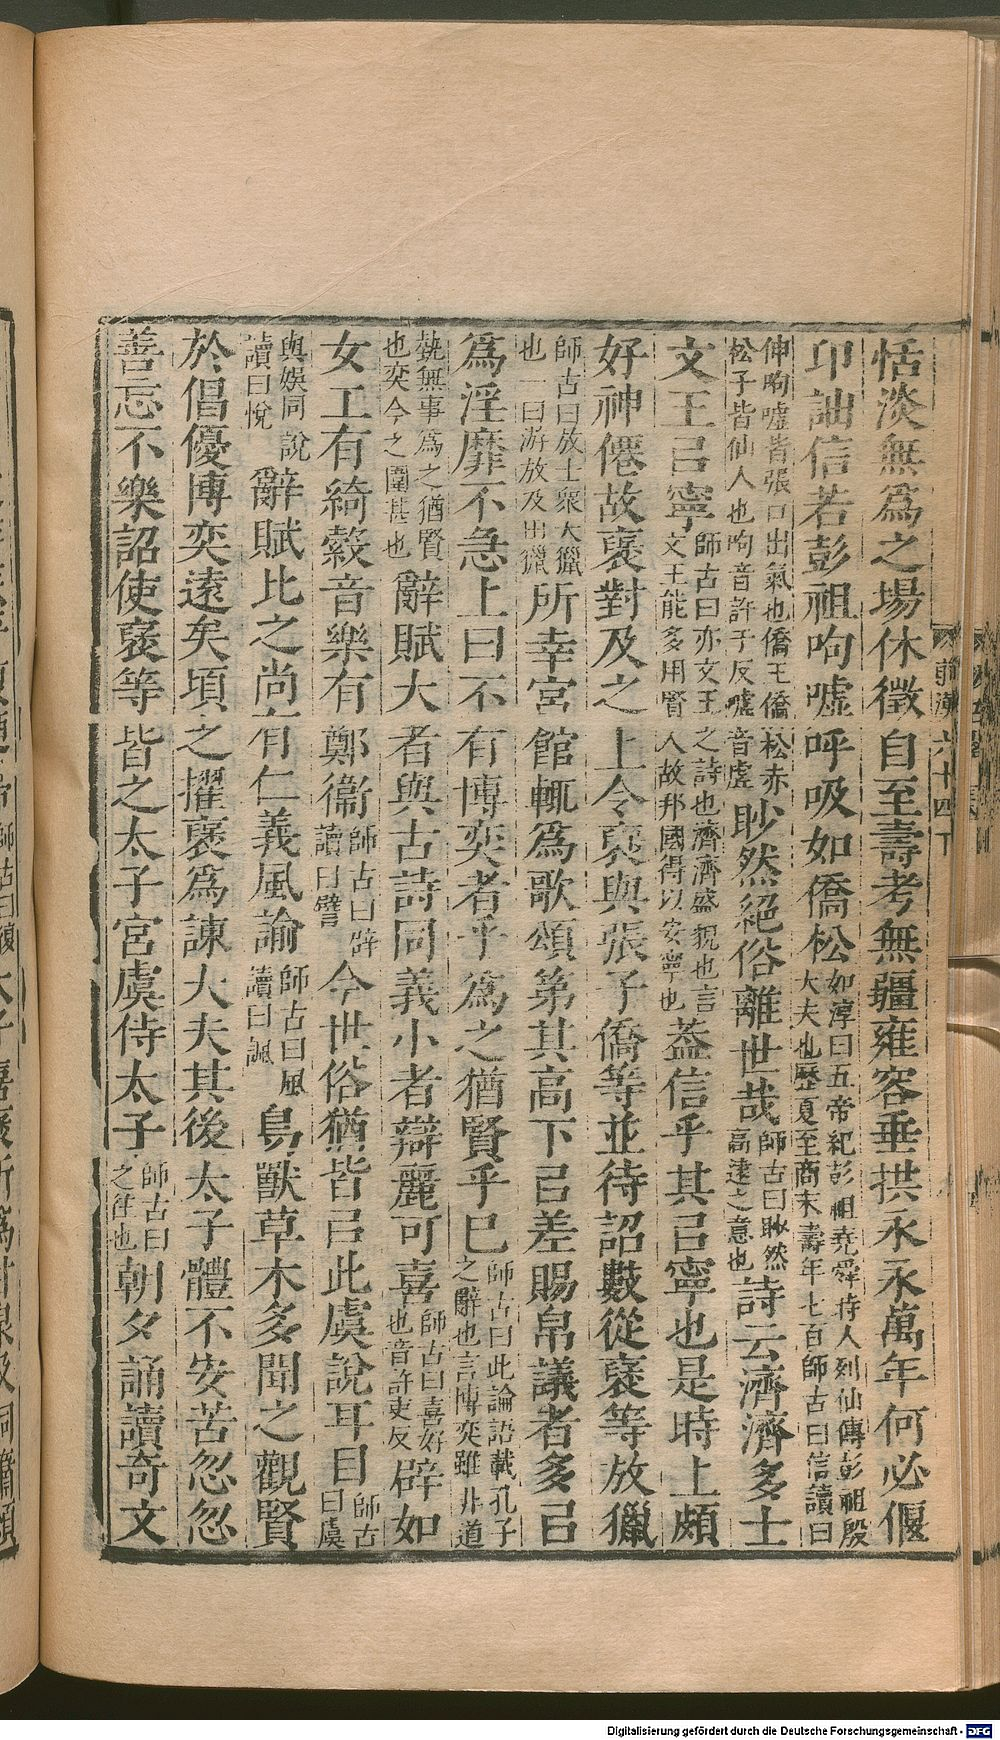 前漢六十四下
恬淡無爲之場休徵自至壽考無疆雍容垂拱永永萬年何必偃
卬詘信若彭祖呴噓呼吸如僑松如淳曰五帝紀彭祖堯舜時人列仙傳彭祖殷大夫也歷夏至商末壽年七百師古曰信讀曰
伸呴噓皆張口出氣也僑王僑松赤松子皆仙人也呴音許于反噓音虛眇然絕俗離世哉師古曰眇然高遠之意也詩云濟濟多士
文王㠯寧師古曰亦文王之詩也濟濟盛貌也言文王能多用賢人故邦國得以安寧也蓋信乎其㠯寧也是時上頗
好神僊故襃對及之上令襃與張子僑等並待詔數從襃等放獵
師古曰放士衆大獵也一曰游放及田獵所幸宮館輒爲歌頌第其高下㠯差賜帛議者多㠯
爲淫靡不急上曰不有博奕者乎爲之猶賢乎已師古曰此論語載孔子之辭也言博奕雖非道
蓺無事爲之猶賢也奕今之圍棊也辭賦大者與古詩同義小者辯麗可喜師古曰喜好也音許吏反辟如
女工有綺縠音樂有鄭衞師古曰辟讀曰譬今世俗猶皆㠯此虞說耳目師古曰虞
與娛同說讀曰悅辭賦比之尚有仁義風諭師古曰風讀曰諷鳥獸草木多聞之觀賢
於倡優博奕遠矣頃之擢襃爲諫大夫其後太子體不安苦忽忽
善忘不樂詔使襃等皆之太子宮虞侍太子師古曰之往也朝夕誦讀奇文
Digitalisierung gefördert durch die Deutsche Forschungsgemeinschaft - DFG